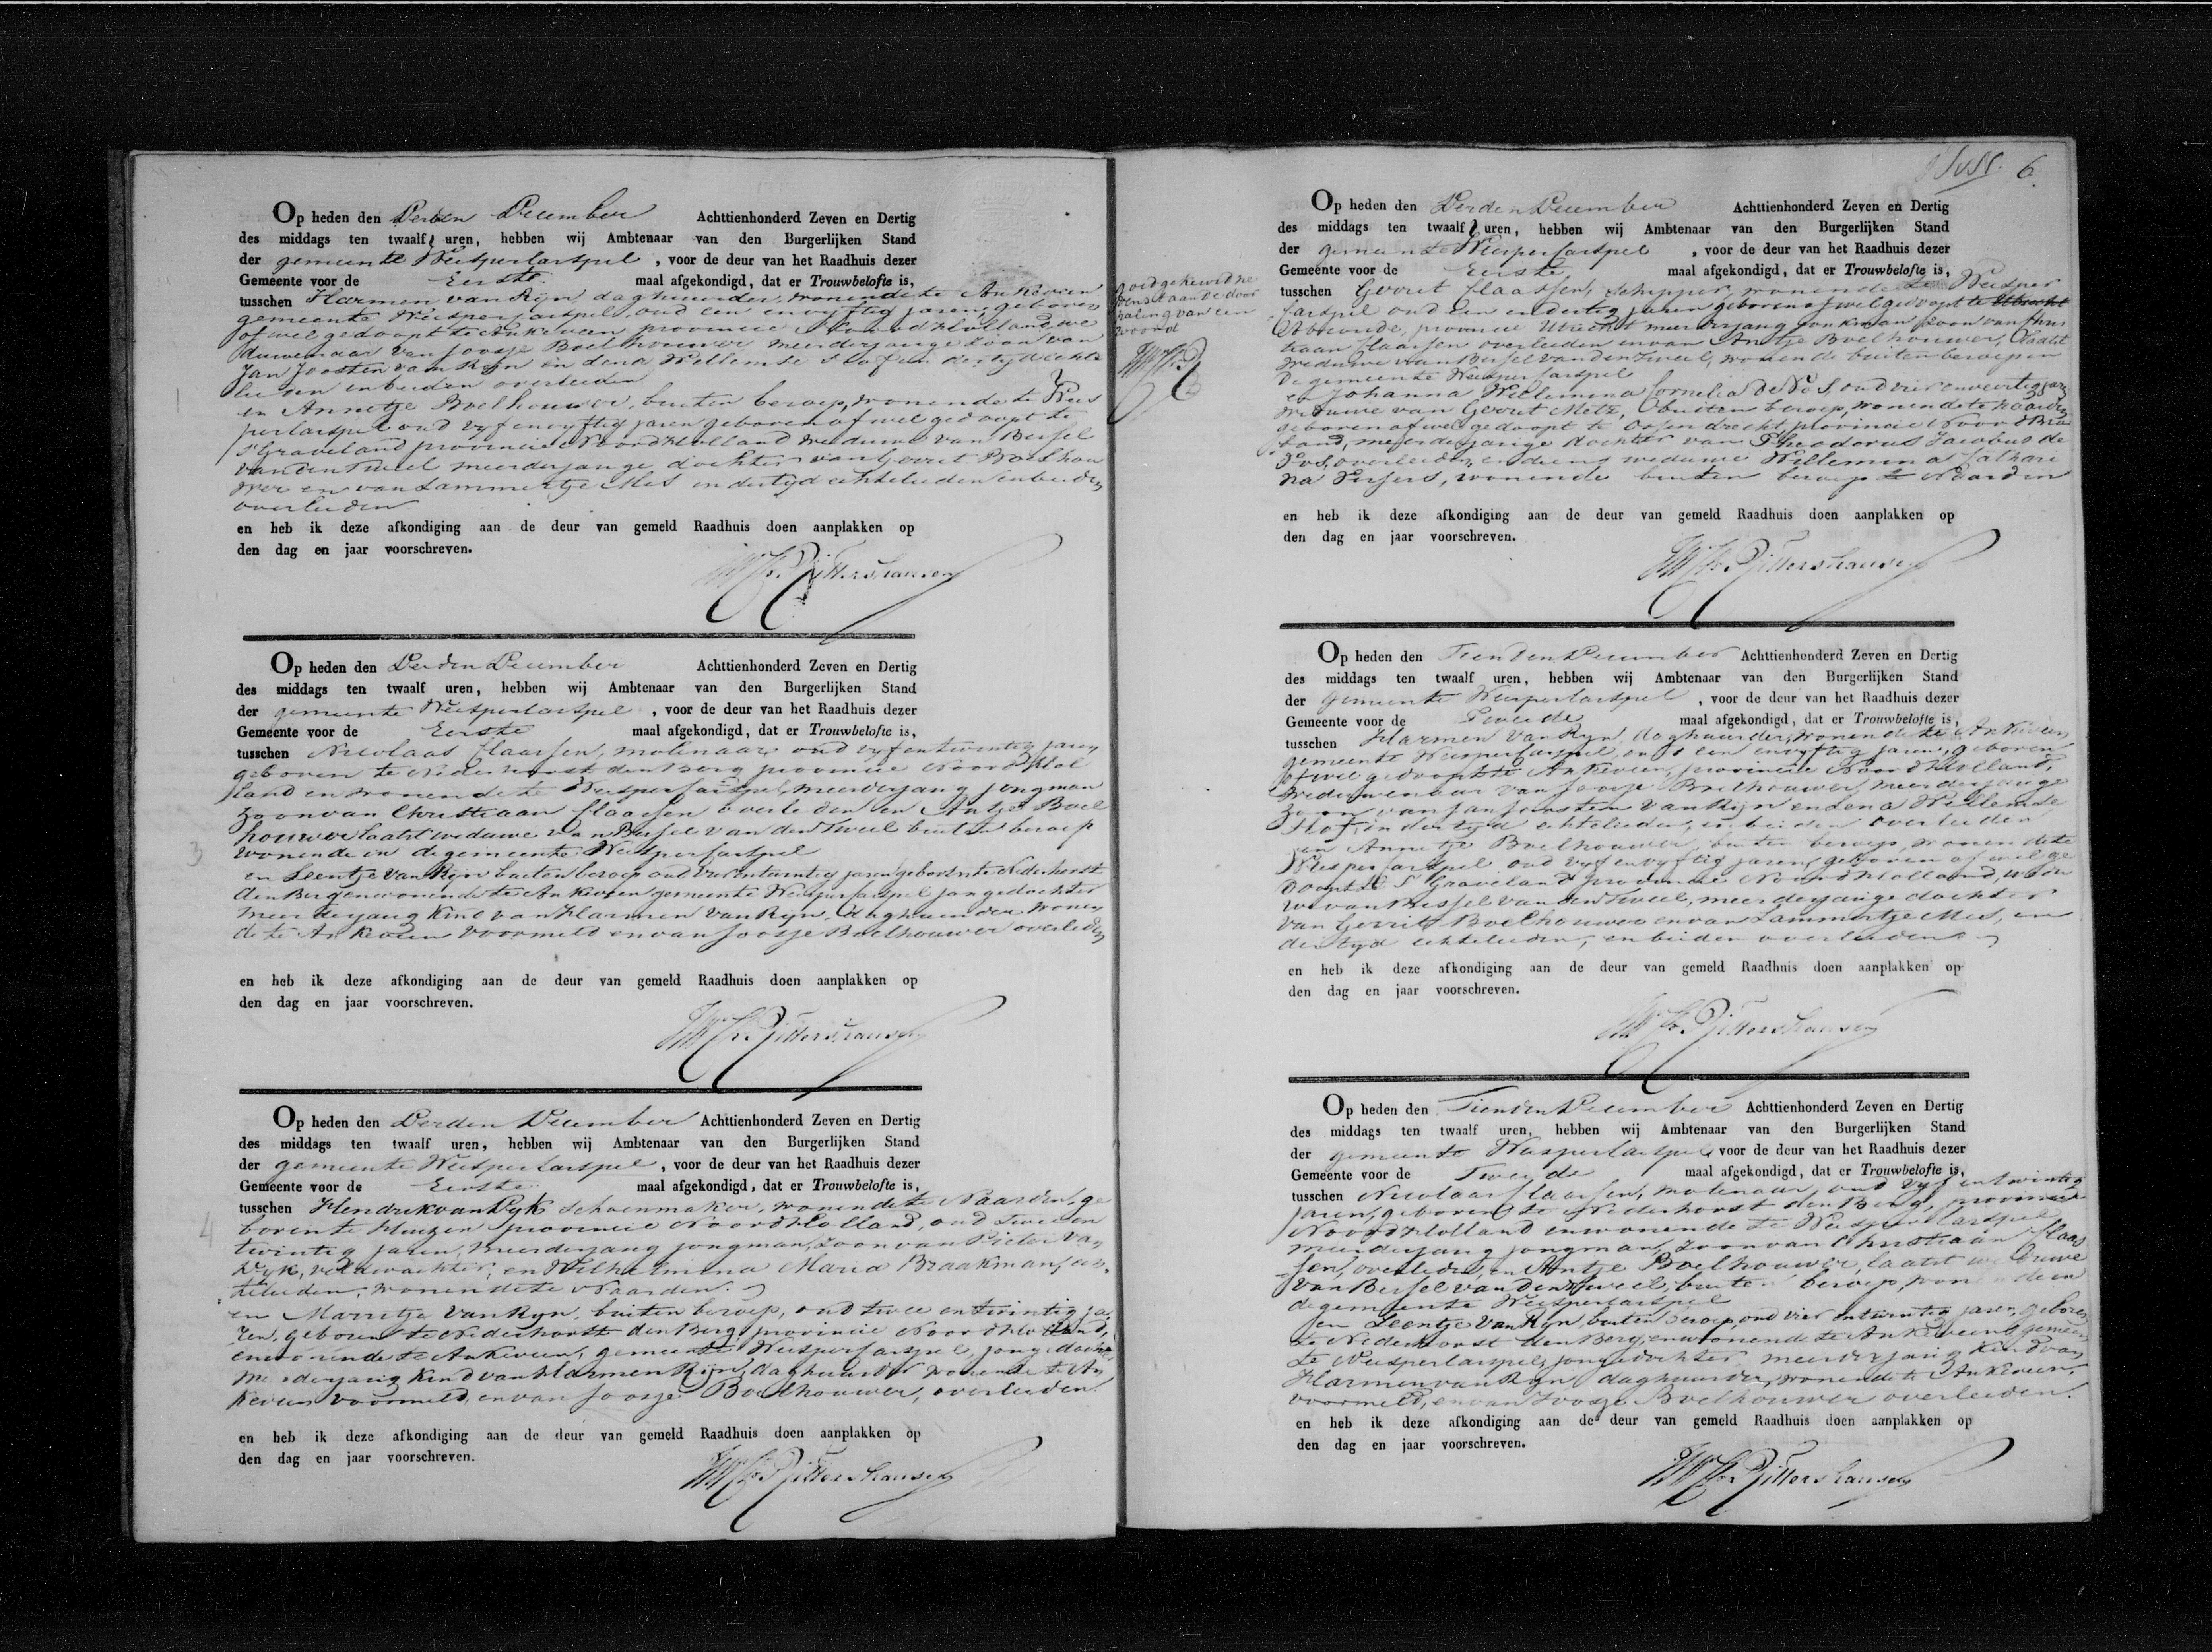 Op heden den Derden December Achttienhonderd Zeven en Dertig
des middags ten twaalf uren, hebben wij Ambtenaar van den Burgerlijken Stand
der gemeente Weesperkarspel, voor de deur van het Raadhuis dezer
Gemeente voor de Eerste maal afgekondigd, dat er Trouwbelofte is,
tusschen Harmen van Ryn daghuurder, wonende te Ankeveen
gemeente Weesperkarspel, oud een en vyftig jaren, geboren
of wel gedoopt te Ankeveen provincie Noord Holland, we
duwenaar van Joosje Boelhouwer meerderjarige zoon van
Jan Joosten van Ryn en Lena Willemse Slof in dertyd echte
lieden en beiden overleden
en Annetje Boelhouwer, buiten beroep, wonende te Wees
perkarspel oud vyf en vyftig jaren geboren of wel gedoopt te
s'Graveland provincie Noord Holland weduwe van Bessel
van den Tweel meerderjarige dochter van Gerrit Boelhou
wer en van Lammertje Mes in dertyd echtelieden en beiden
overleden
en heb ik deze afkondiging aan de deur van gemeld Raadhuis doen aanplakken op
den dag en jaar voorschreven.
Rittershausen
Op heden den Derden December Achttienhonderd Zeven en Dertig
des middags ten twaalf uren, hebben wij Ambtenaar van den Burgerlijken Stand
der gemeente Weesperkarspel, voor de deur van het Raadhuis dezer
Gemeente voor de Eerste maal afgekondigd, dat er Trouwbelofte is,
tusschen Nicolaas Claassen, molenaar oud vyf en twintig jaren
geboren te Nederhorst den Berg provincie Noord Hol
land en wonende te Weesperkarspel, meerderjarig jongman
zoon van Christiaan Claassen overleden en Antje Boel
houwer laatst weduwe van Bessel van den Tweel buiten beroep
3
wonende in de gemeente Weesperkarspel
en Leentje van Ryn buiten beroep oud vier en twintig jaren geboren te Nederhorst
den Berg en wonende te Ankeveen gemeente Weesperkarspel jongedochter
meerderjarig kind van Harmen van Ryn, daghuurder wonen
de te Ankeveen voormeld en van Joosje Boelhouwer overleden
en heb ik deze afkondiging aan de deur van gemeld Raadhuis doen aanplakken op
den dag en jaar voorschreven.
Rittershausen
Op heden den Derden December Achttienhonderd Zeven en Dertig
des middags ten twaalf uren, hebben wij Ambtenaar van den Burgerlijken Stand
der gemeente Weesperkarspel, voor de deur van het Raadhuis dezer
Gemeente voor de Eerste maal afgekondigd, dat er Trouwbelofte is,
tusschen Hendrik van Dyk schoenmaker, wonende te Naarden, ge
4
boren te Huizen provincie Noord Holland, oud twee en
twintig jaren, meerderjarig jongman, zoon van Pieter van
Dyk, veldwachter, en Wilhelmina Maria Braakman, ech
telieden, wonende te Naarden.
en Marretje van Ryn, buiten beroep, oud twee en twintig ja
ren, geboren te Nederhorst den Berg, provincie Noord Holland,
en wonende te Ankeveen, gemeente Weesperkarspel, jongedochter
meerderjarig kind van Harmen Ryn, daghuurder wonende te An
keveen voormeld, en van Joosje Boelhouwer, overleden.
en heb ik deze afkondiging aan de deur van gemeld Raadhuis doen aanplakken op
den dag en jaar voorschreven.
Rittershausen
6
Op heden den Derden December Achttienhonderd Zeven en Dertig
des middags ten twaalf uren, hebben wij Ambtenaar van den Burgerlijken Stand
der gemeente Weesperkarspel, voor de deur van het Raadhuis dezer
Gemeente voor de Eerste maal afgekondigd, dat er Trouwbelofte is,
goedgekeurd ne
venstaande door
haling van een
woord
tusschen Gerrit Claassen, schipper, wonende te Weesper
karspel oud een en dertig jaren geboren of wel gedoopt te Utrecht
Abcoude, provincie Utrecht meerderjarig jonkman zoon van Chris
tiaan Claassen overleden en van Antje Boelhouwer, laatst
weduwe van Bessel van den Tweel, wonende buiten beroep in
de gemeente Weesperkarspel
en Johanna Willemina Cornelia de Vos, oud vier en veertig jaren
weduwe van Gerrit Metz, buiten beroep, wonende te Naarden
geboren of wel gedoopt te Ossendrecht, provincie Noord Bra
band, meerderjarige dochter van Theodorus Jacobus de
Vos, overleden, en diens weduwe Willemina Cathari
na, wonende buiten beroep te Naarden
en heb ik deze afkondiging aan de deur van gemeld Raadhuis doen aanplakken op
den dag en jaar voorschreven.
Rittershausen
Op heden den Tienden December Achttienhonderd Zeven en Dertig
des middags ten twaalf uren, hebben wij Ambtenaar van den Burgerlijken Stand
der gemeente Weesperkarspel, voor de deur van het Raadhuis dezer
Gemeente voor de Tweede maal afgekondigd, dat er Trouwbelofte is,
tusschen Harmen van Ryn, daghuurder, wonende te Ankeveen
gemeente Weesperkarspel, oud een en vyftig jaren, geboren
of wel gedoopt te Ankeveen, provincie Noord Holland,
weduwenaar van Joosje Boelhouwer, meerderjarige
zoon van Jan Joosten van Ryn en Lena Willemse
Slof, in dertyd echtelieden, en beiden overleden
en Annetje Boelhouwer, buiten beroep, wonende te
Weesperkarspel oud vyf en vyftig jaren, geboren of wel ge
doopt te s'Graveland provincie Noord Holland, wedu
we van Bessel van den Tweel, meerderjarige dochter
van Gerrit Boelhouwer en van Lammertje Mes, in
dertyd echtelieden, en beiden overleden
en heb ik deze afkondiging aan de deur van gemeld Raadhuis doen aanplakken op
den dag en jaar voorschreven.
Rittershausen
Op heden den Tienden December Achttienhonderd Zeven en Dertig
des middags ten twaalf uren, hebben wij Ambtenaar van den Burgerlijken Stand
der gemeente Weesperkarspel, voor de deur van het Raadhuis dezer
Gemeente voor de Tweede maal afgekondigd, dat er Trouwbelofte is,
tusschen Nicolaas Claassen, molenaar oud vyf en twintig
jaren, geboren te Nederhorst den Berg, provincie
Noord Holland en wonende te Weesperkarspel
meerderjarig jongman, zoon van Christiaan Claas
sen, overleden, en Antje Boelhouwer, laatst weduwe
van Bessel van den Tweel, buiten beroep, wonende in
de gemeente Weesperkarspel
en Leentje van Ryn, buiten beroep, oud vier en twintig jaren, geboren
te Nederhorst den Berg, en wonende te Ankeveen gemeen
te Weesperkarspel, jongedochter, meerderjarig kind van
Harmen van Ryn daghuurder, wonende te Ankeveen,
voormeld, en van Joosje Boelhouwer overleden.
en heb ik deze afkondiging aan de deur van gemeld Raadhuis doen aanplakken op
den dag en jaar voorschreven.
Rittershausen